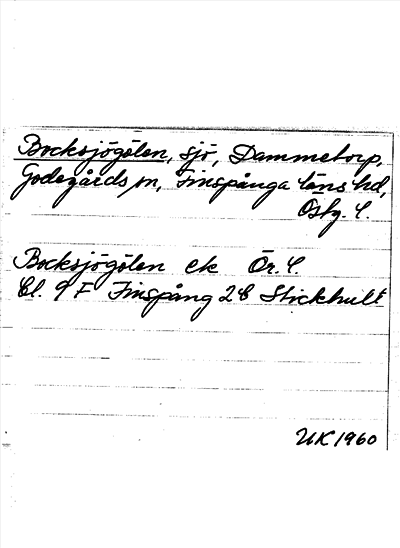 Bocksjögölen, sjö, Dammetorp,
Godegårds sn, Finspånga läns hd,
Östg. l.
Bocksjögölen ek Ör. l.
Bl. 9 F Finspång 2 c Stickhult
UK 1960